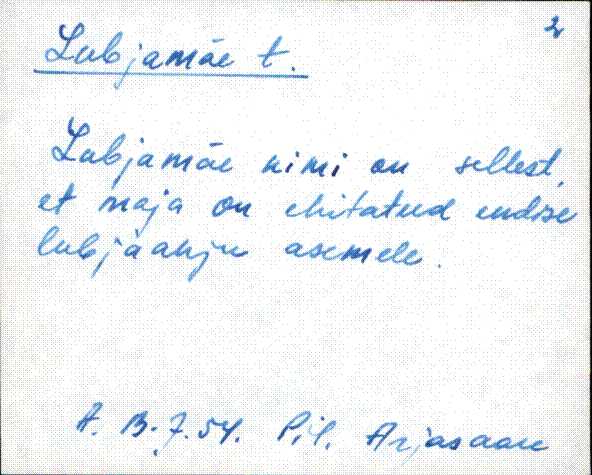 2
Lubjamäe t.
Lubjamäe nimi on sellest,
et maja on ehitatud endise
lubjaahju asemele.
A. B. 7.54. Pil. Arjasaare